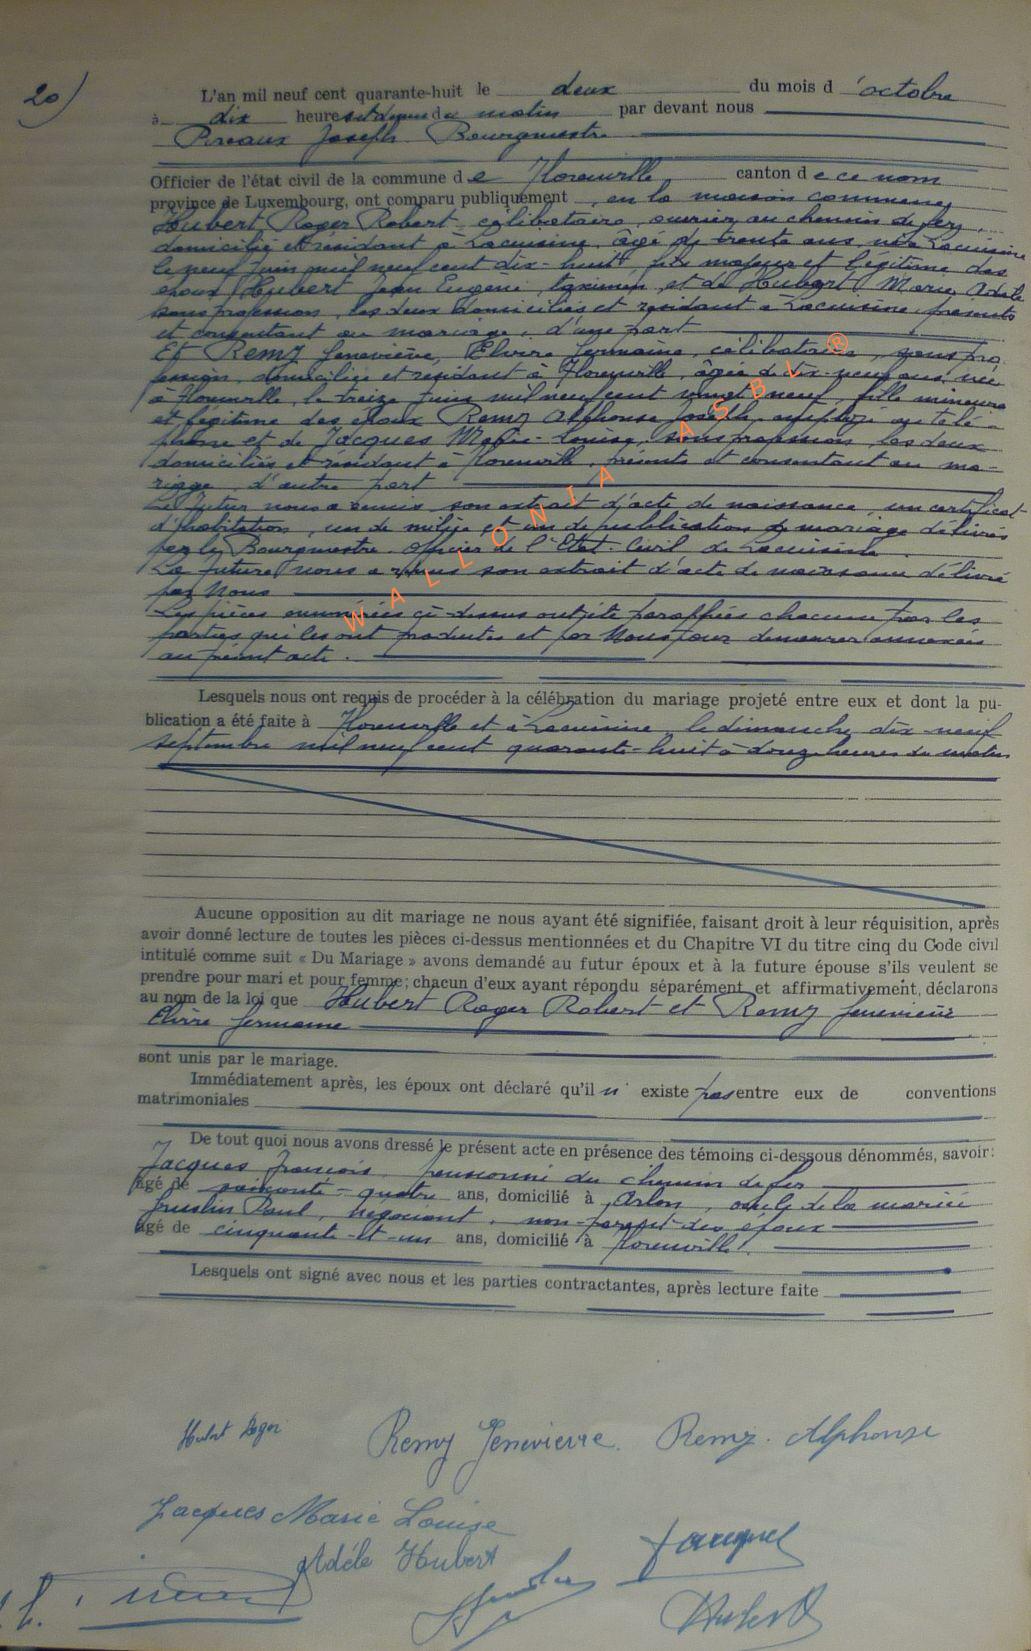 20)
L'an mil neuf cent quarante-huit le deux du mois d'octobre
à dix heures et demie du matin par devant nous
Joseph Bourgmestre
Officier de l'état civil de la commune de Florenville, canton de ce nom
province de Luxembourg, ont comparu publiquement, en la maison commune,
Hubert, Roger Robert, célibataire, ouvrier au chemin de fer,
domicilié et résidant à Lacuisine, âgé de trente ans, né à Lacuisine
le neuf Juin mil neuf cent dix-huit, fils majeur et légitime des
époux Hubert Jean Eugène, et de Hubert Marie Adèle
sans profession, les deux domiciliés et résidant à Lacuisine, présents
et consentant au mariage, d'une part
Et Remy Geneviève, Elvire Germaine, célibataire, sans pro
fession, domiciliée et résidant à Florenville, âgée de dix-neuf ans, née
à Florenville, le treize Juin mil neuf cent vingt neuf, fille mineure
et légitime des époux Remy Alphonse Joseph, employé au télé-
phone et de Jacques Marie-Louise, sans profession, les deux
domiciliés et résidant à Florenville, présents et consentant au ma-
riage, d'autre part
Le futur nous a remis son extrait d'acte de naissance, un certificat
d'habitation, un de milice et un de publication de mariage délivrés
par le Bourgmestre Officier de l'Etat-Civil de Lacuisine.
La future nous a remis son extrait d'acte de naissance délivré
par Nous
Les pièces énumérées ci-dessus ont été paraffées chacune par les
parties qui les ont produites et par Nous pour demeurer annexées
au présent acte.
WALLONIA ASBL ®
Lesquels nous ont requis de procéder à la célébration du mariage projeté entre eux et dont la pu-
blication a été faite à Florenville et à Lacuisine le dimanche dix-neuf
septembre mil neuf cent quarante-huit à douze heures du matin
Aucune opposition au dit mariage ne nous ayant été signifiée, faisant droit à leur réquisition, après
avoir donné lecture de toutes les pièces ci-dessus mentionnées et du Chapitre VI du titre cinq du Code civil
intitulé comme suit « Du Mariage » avons demandé au futur époux et à la future épouse s'ils veulent se
prendre pour mari et pour femme; chacun d'eux ayant répondu séparément et affirmativement, déclarons
au nom de la loi que Hubert Roger Robert et Remy Geneviève
Elvire Germaine
sont unis par le mariage.
Immédiatement après, les époux ont déclaré qu'il n' existe pas entre eux de conventions
matrimoniales
De tout quoi nous avons dressé le présent acte en présence des témoins ci-dessous dénommés, savoir:
Jacques François, pensionné du chemin de fer
âgé de soixante-quatre ans, domicilié à Arlon, oncle de la mariée
Paul, négociant, non-parent des époux
âgé de cinquante-et-un ans, domicilié à Florenville.
Lesquels ont signé avec nous et les parties contractantes, après lecture faite
Hubert Roger
Remy Geneviève. Remy. Alphonse
Jacques Marie Louise
Adèle Hubert
Jacques
Hubert